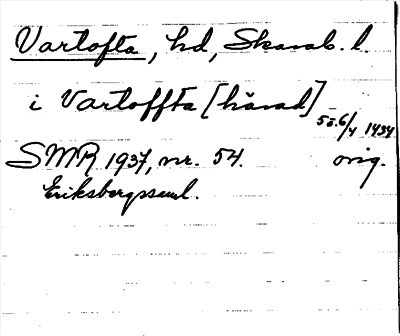 Vartofta, hd, Skarab. l.
i Vartoffta [härad]
5ö. 6/4 1434
SMR 1937, nr. 54. orig.
Eriksbergssaml.